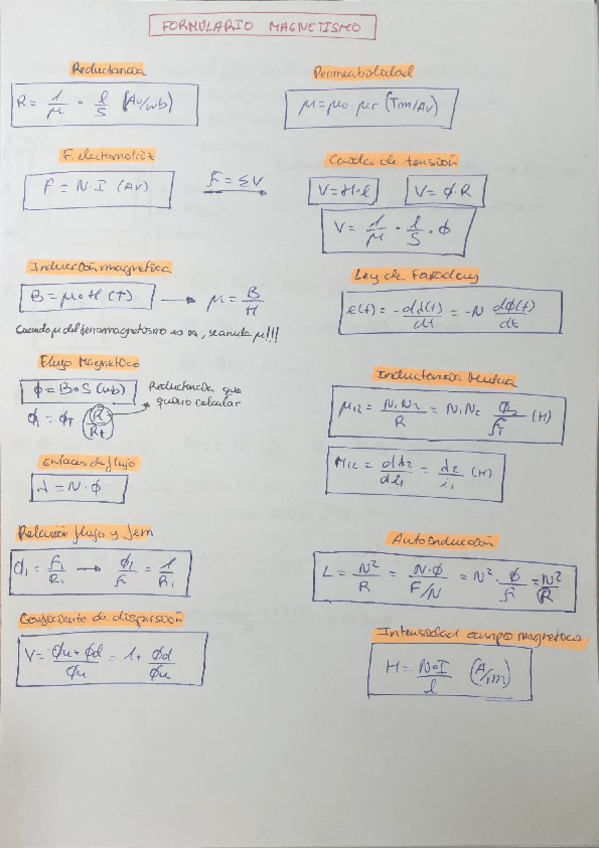 FORMULARIO MAGNETISMO
Reductancia
R = 1/μ · l/S (Av/wb)
Permeabilidad
μ = μ0 · μr (Tm/Av)
F. electromotriz
F = N·I (AV)
F = ΣV
Caida de tensión
V = H·l
V = ϕ·R
V = 1/μ · l/S · ϕ
Inducción magnética
B = μ·H (T) → μ = B/H
Cuando μ del ferromagnetismo es ∞, se anula μ!!!
Ley de Faraday
e(t) = -dλ(t)/dt = -N dϕ(t)/dt
Flujo Magnético
ϕ = B·S (wb)
Reductancia que
quiero calcular
Inductancia Mutua
μ12 = N1N2/R = N1N2
(H)
M12 = dλ2/di1 = λ2/i1 (H)
Enlaces de flujo
λ = N·ϕ
Relación flujo y fem
ϕ1 = F1/R1 → ϕ1/F1 = 1/R1
Autoinducción
L = N²/R = N·ϕ/F/N = N² · ϕ/F = N²/R
Coeficiente de dispersión
V = ϕu + ϕd/ϕu = 1 + ϕd/ϕu
Intensidad campo magnético
H = N·I/l (A/m)